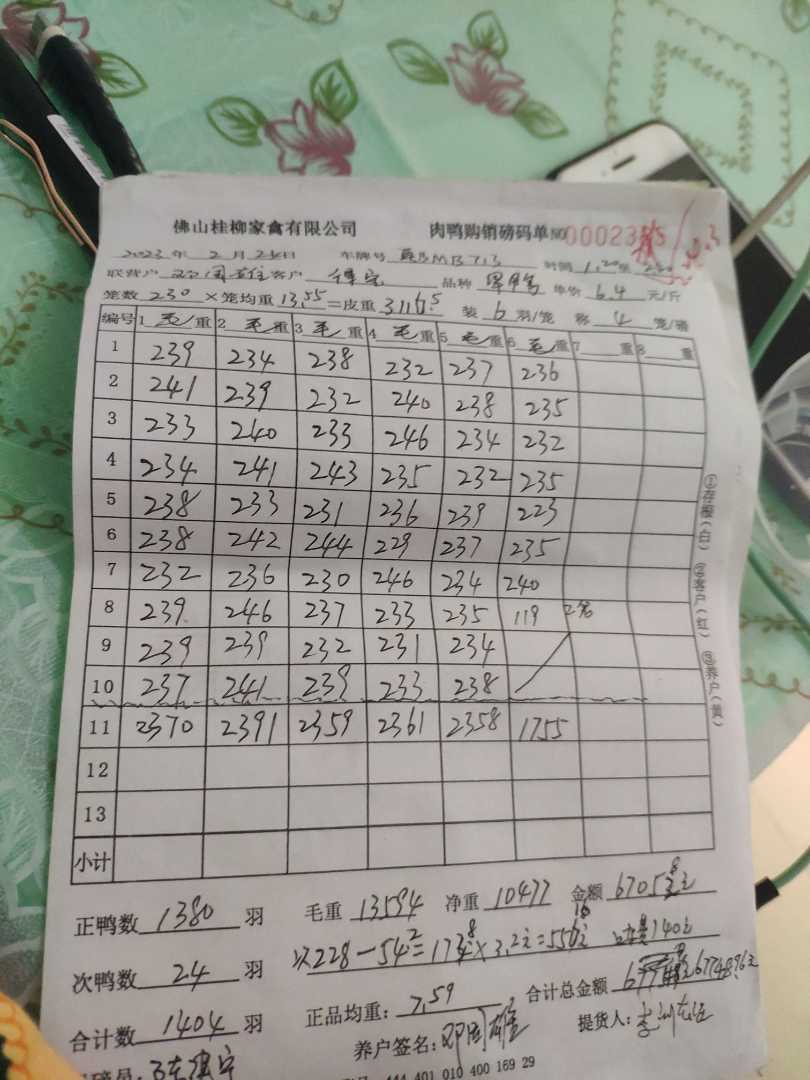 佛山桂柳家禽有限公司 肉鸭购销磅码单 NO 000023
2023年2月24日 车牌号 时间 1.20
联营户 客户 品种 单价 6.4 元/斤
笼数 230 ×笼均重 13.55 =皮重 3116.5 装 6 羽/笼 称 4 笼/磅
编号 1 毛重 2 毛重 3 毛重 4 毛重 5 毛重 6 毛重 7 重 8 重
1 239 234 238 232 237 236
2 241 239 232 240 238 235
3 233 240 233 246 234 232
4 234 241 243 235 232 235
5 238 233 231 236 239 223
6 238 242 244 229 237 235
7 232 236 230 246 234 240
8 239 246 237 233 235 119 2笼
9 239 239 232 231 234
10 237 241 239 233 238
11 2370 2391 2359 2361 2358 1755
12
13
小计
①存根(白) ②客户(红) ③养户(黄)
正鸭数 1380 羽 毛重 13594 净重 10477 金额 67052.8元
次鸭数 24 羽 228-54.2=173.8×3.2元=556.16元 140元
合计数 1404 羽 正品均重: 7.59 合计总金额 67748.96元
磅员: 养户签名: 提货人:
444 401 010 400 169 29